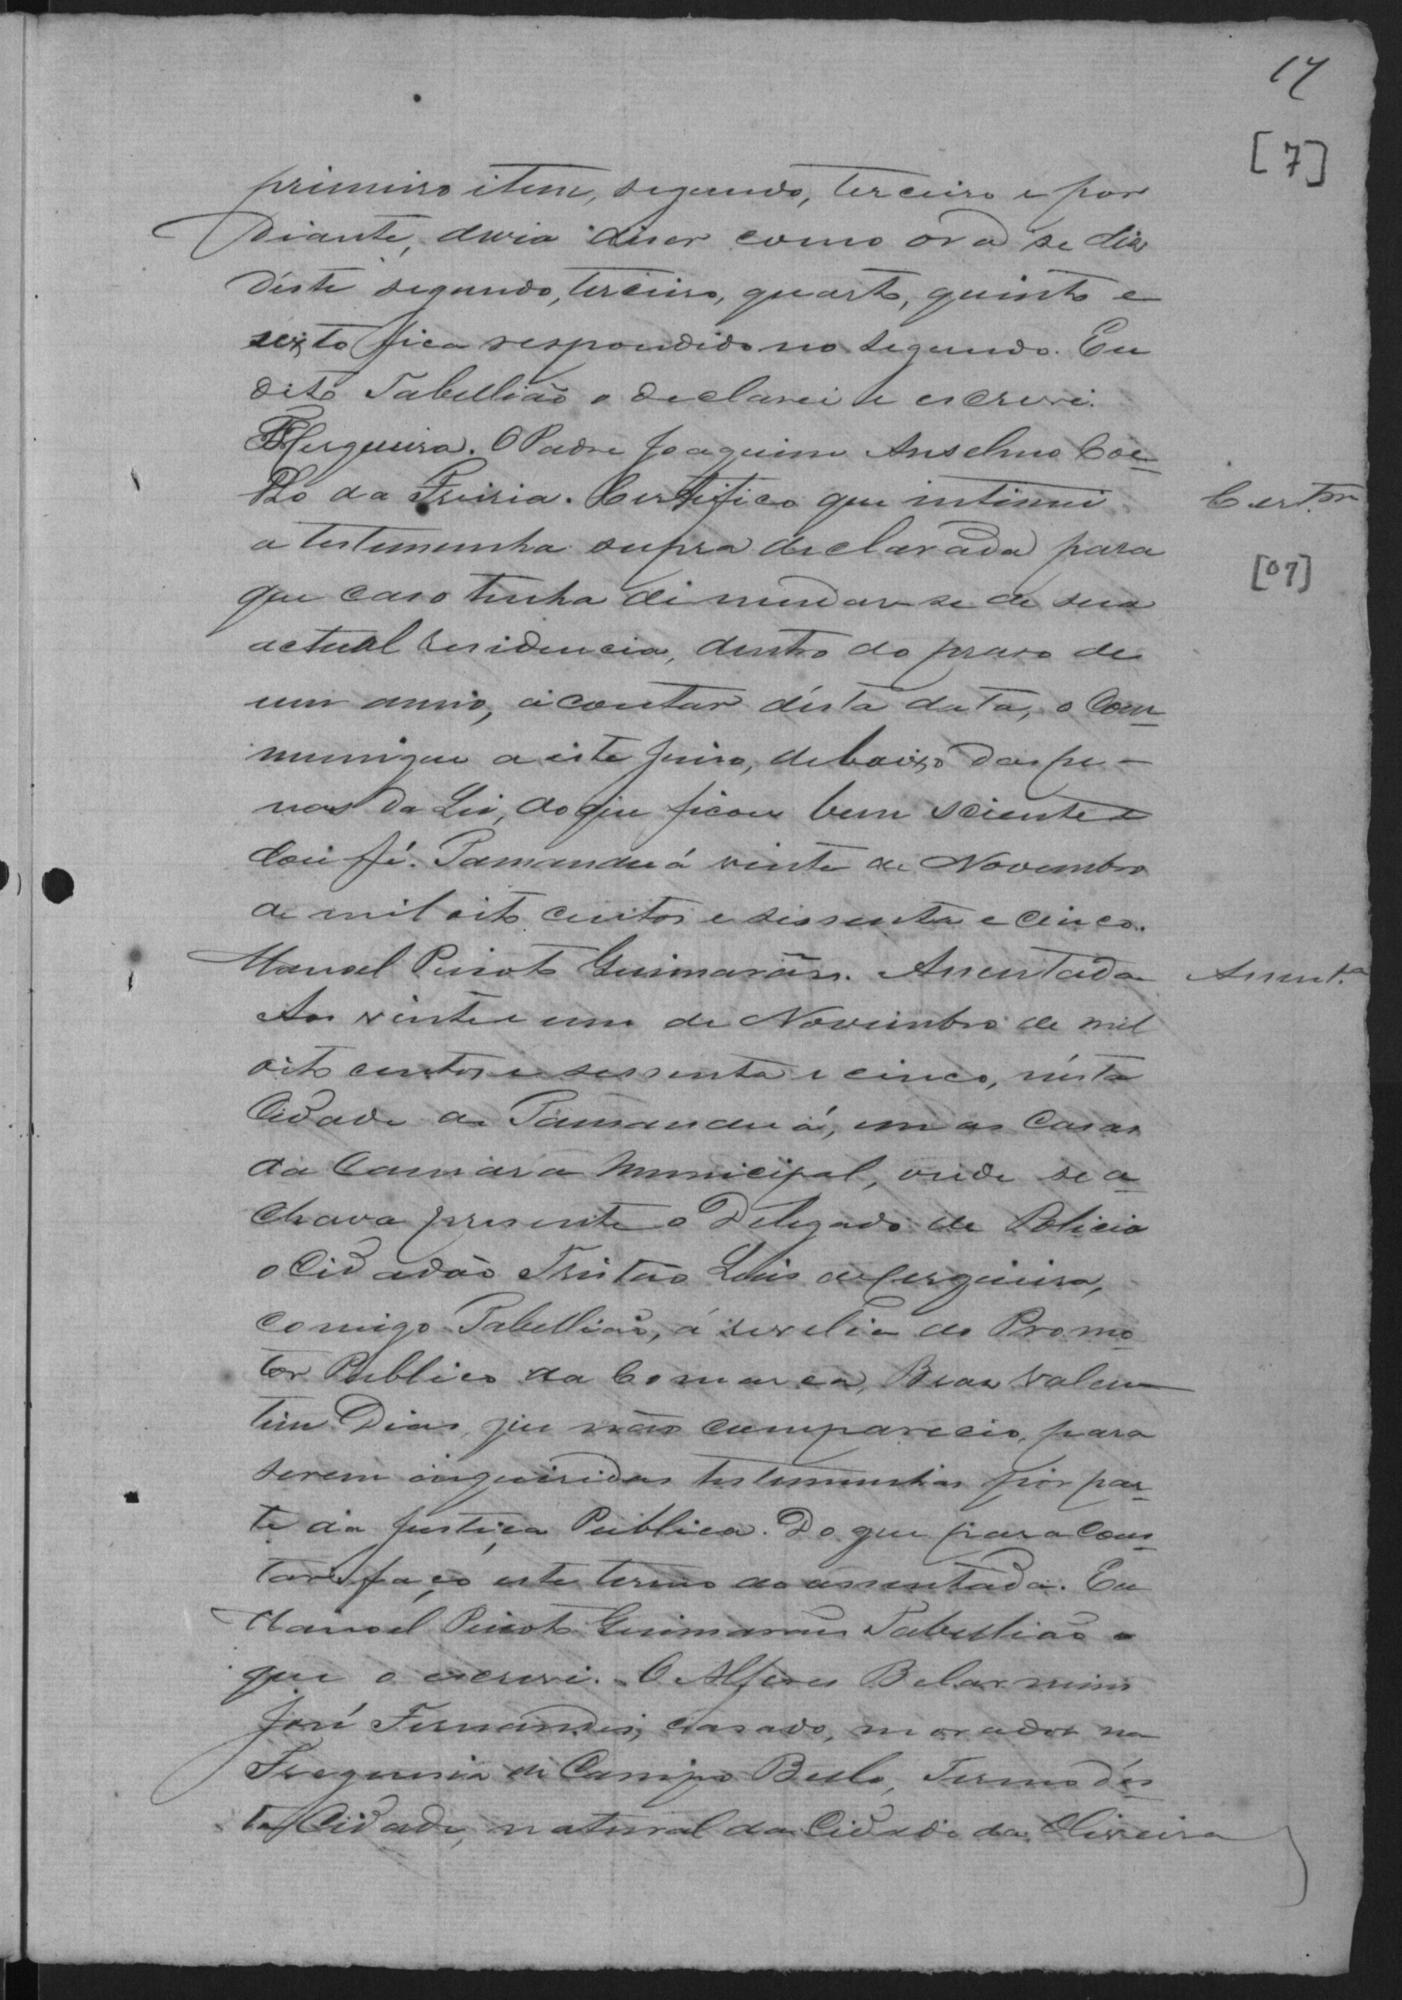 17
[7]
primeiro item, segundo, terceiro e por
diante, devia diser como ora se diz
déste segundo, terceiro, quarto, quinto e
sexto fica respondido no segundo. Eu
dito Tabellião o declarei e escrevi.
Cerqueira. O Padre Joaquim Anselmo Coe-
lho da . Certifico que intimei
a testemunha supra declarada para
que caso tenha de mudar-se de sua
actual residencia, dentro do praso de
um anno, á contar désta data, o com-
munique a este Juiso, debaixo das pe-
nas da Lei, do que ficou bem sciente e
dou fé. Tamanduá vinte de Novembro
de mil oito centos e sessenta e cinco.
Manoel Peixoto Guimarães. Assentada
Aos vinte e um de Novembro de mil
oito centos e sessenta e cinco, nésta
Cidade de Tamanduá, em as Casas
da Camara Municipal, onde se a-
chava presente o Delegado de Policia
o Cidadão Tristão Luis de Cerqueira,
comigo Tabellião, á revelia do Promo-
tor Publico da Comarca, Bras Valen-
tim Dias, que não compareceio, para
serem inqueridas testemunhas por par-
te da Justiça Publica. Do que para cons-
tar faço este termo de assentada. Eu
Manoel Peixoto Guimarães Tabellião o
que o escrevi. O Alferes Belarmino
José Fernandes, casado, morador na
Freguesia de Campo Bello, Termo dés-
ta Cidade, natural da Cidade da Oliveira
Cert.am
[07]
Assent.a